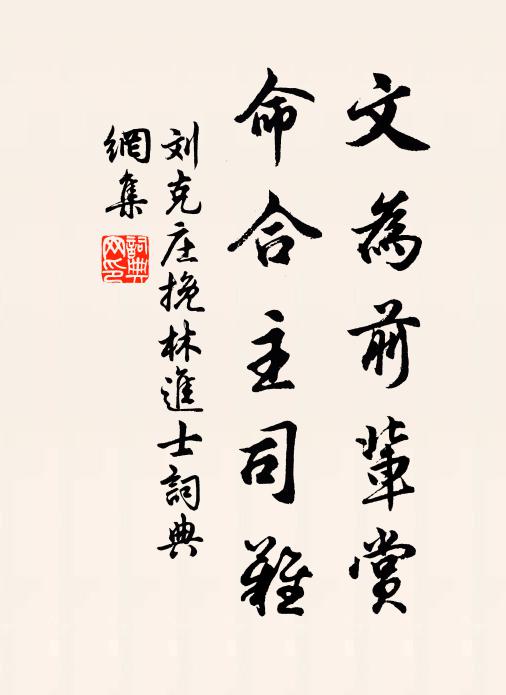 文為前輩賞
命合主司難
刘克庄挽林進士詞典
網集
詞典网印